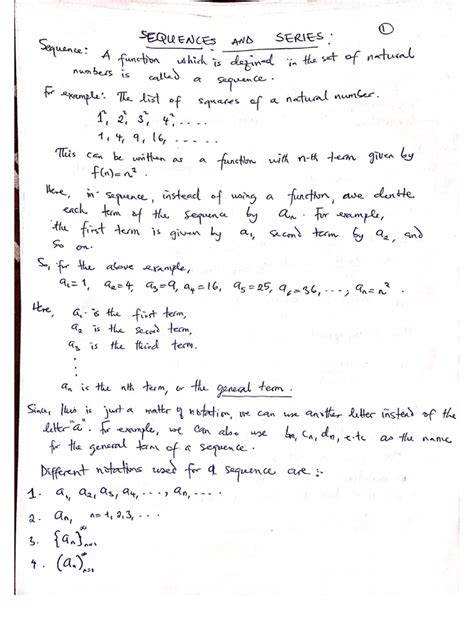 ①
SEQUENCES AND SERIES:
Sequence: A function which is defined in the set of natural
numbers is called a sequence.
For example: The list of squares of a natural number.
1², 2², 3², 4², ....
1, 4, 9, 16, .....
This can be written as a function with n-th term given by
f(n)=n².
Here, in sequence, instead of using a function, we denote
each term of the sequence by an. For example,
the first term is given by a₁, second term by a₂, and
so on.
So, for the above example,
a₁=1, a₂=4, a₃=9, a₄=16, a₅=25, a₆=36, ..., an=n².
Here, a₁ is the first term,
a₂ is the second term,
a₃ is the third term.
⋮
an is the nth term, or the general term.
Since, this is just a matter of notation, we can use another letter instead of the
letter "a". For example, we can also use bn, cn, dn, e.t.c as the name
for the general term of a sequence.
Different notations used for a sequence are:-
1. a₁, a₂, a₃, a₄, ..., an, ....
2. an, n=1,2,3, ...
3. {an}∞n=1
4. (an)∞n=1